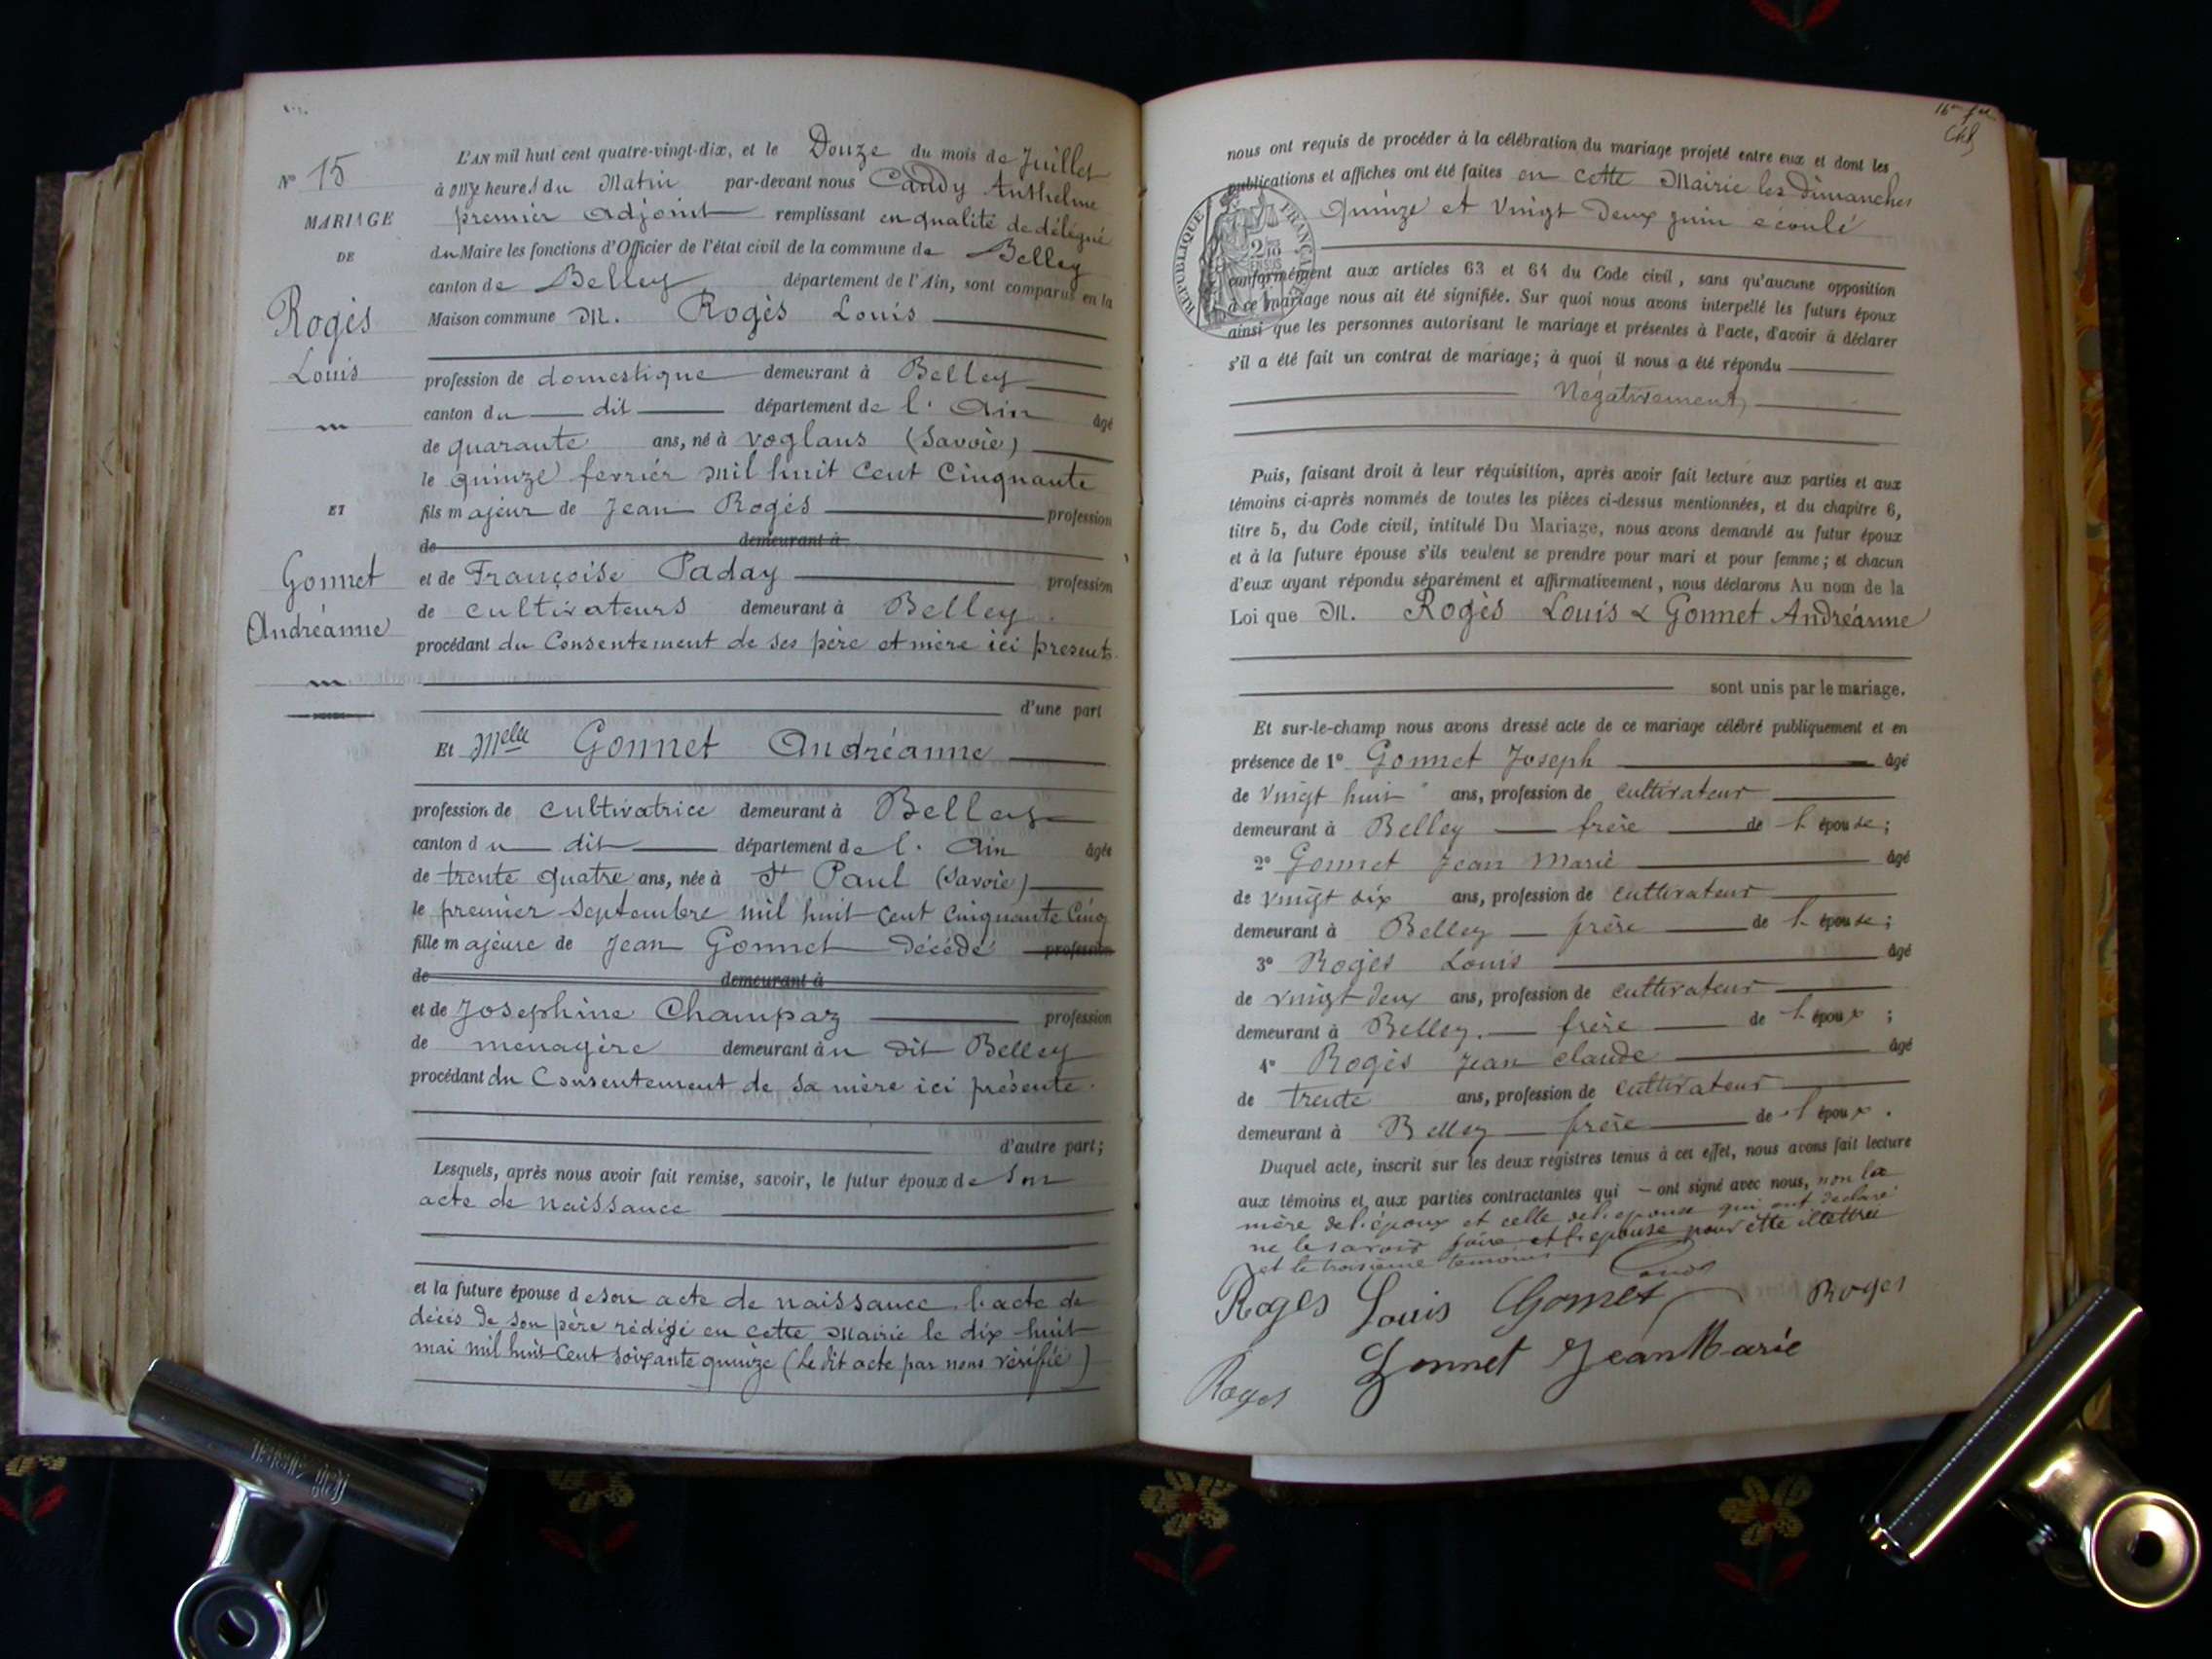 N° 15
MARIAGE
DE
Rogès
Louis
ET
Gonnet
Andréanne
L'AN mil huit cent quatre-vingt-dix, et le Douze du mois de Juillet
à onze heures du Matin par-devant nous Candy Anthelme
premier adjoint remplissant en qualité de délégué
du Maire les fonctions d'Officier de l'état civil de la commune de Belley
canton de Belley département de l'Ain, sont comparus en la
Maison commune M. Rogès Louis
profession de domestique demeurant à Belley
canton du dit département de l'Ain âgé
de quarante ans, né à Voglans (Savoie)
le quinze fevrier mil huit cent cinquante
fils majeur de Jean Rogès profession
de demeurant à
et de Françoise Paday profession
de cultivateurs demeurant à Belley
procédant du Consentement de ses père et mère ici présents
d'une part
Et Melle Gonnet Andréanne
profession de cultivatrice demeurant à Belley
canton du dit département de l'Ain âgée
de trente quatre ans, née à St Paul (Savoie)
le premier septembre mil huit cent cinquante cinq
fille majeure de Jean Gonnet décédé profession
de demeurant à
et de Josephine Champaz profession
de menagère demeurant au dit Belley
procédant du Consentement de sa mère ici présente.
d'autre part;
Lesquels, après nous avoir fait remise, savoir, le futur époux de son
acte de naissance
et la future épouse de son acte de naissance, l'acte de
décès de son père rédigé en cette Mairie le dix huit
mai mil huit cent soixante quinze (le dit acte par nous vérifié)
nous ont requis de procéder à la célébration du mariage projeté entre eux et dont les
publications et affiches ont été faites en cette Mairie les dimanches
quinze et vingt deux juin ecoulé
RÉPUBLIQUE FRANÇAISE
conformément aux articles 63 et 64 du Code civil, sans qu'aucune opposition
à ce mariage nous ait été signifiée. Sur quoi nous avons interpellé les futurs époux
ainsi que les personnes autorisant le mariage et présentes à l'acte, d'avoir à déclarer
s'il a été fait un contrat de mariage; à quoi il nous a été répondu
Négativement,
Puis, faisant droit à leur réquisition, après avoir fait lecture aux parties et aux
témoins ci-après nommés de toutes les pièces ci-dessus mentionnées, et du chapitre 6,
titre 5, du Code civil, intitulé Du Mariage, nous avons demandé au futur époux
et à la future épouse s'ils veulent se prendre pour mari et pour femme; et chacun
d'eux ayant répondu séparément et affirmativement, nous déclarons Au nom de la
Loi que M. Rogès Louis & Gonnet Andréanne
sont unis par le mariage.
Et sur-le-champ nous avons dressé acte de ce mariage célébré publiquement et en
présence de 1° Gonnet Joseph âgé
de vingt huit ans, profession de cultivateur
demeurant à Belley frère de l'épouse;
2° Gonnet Jean Marie âgé
de vingt six ans, profession de cultivateur
demeurant à Belley frère de l'épouse;
3° Rogès Louis âgé
de vingt deux ans, profession de cultivateur
demeurant à Belley. frère de l'époux;
4° Rogès Jean Claude âgé
de trente ans, profession de cultivateur
demeurant à Belley frère de l'époux.
Duquel acte, inscrit sur les deux registres tenus à cet effet, nous avons fait lecture
aux témoins et aux parties contractantes qui ont signé avec nous, non la
mère de l'époux et celle de l'epouse qui ont declaré
ne le savoir faire et l'epouse pour être illettrée
et le troisième temoins
Roges Louis Gonnet Candy Roges
Roges Gonnet Jean Marie